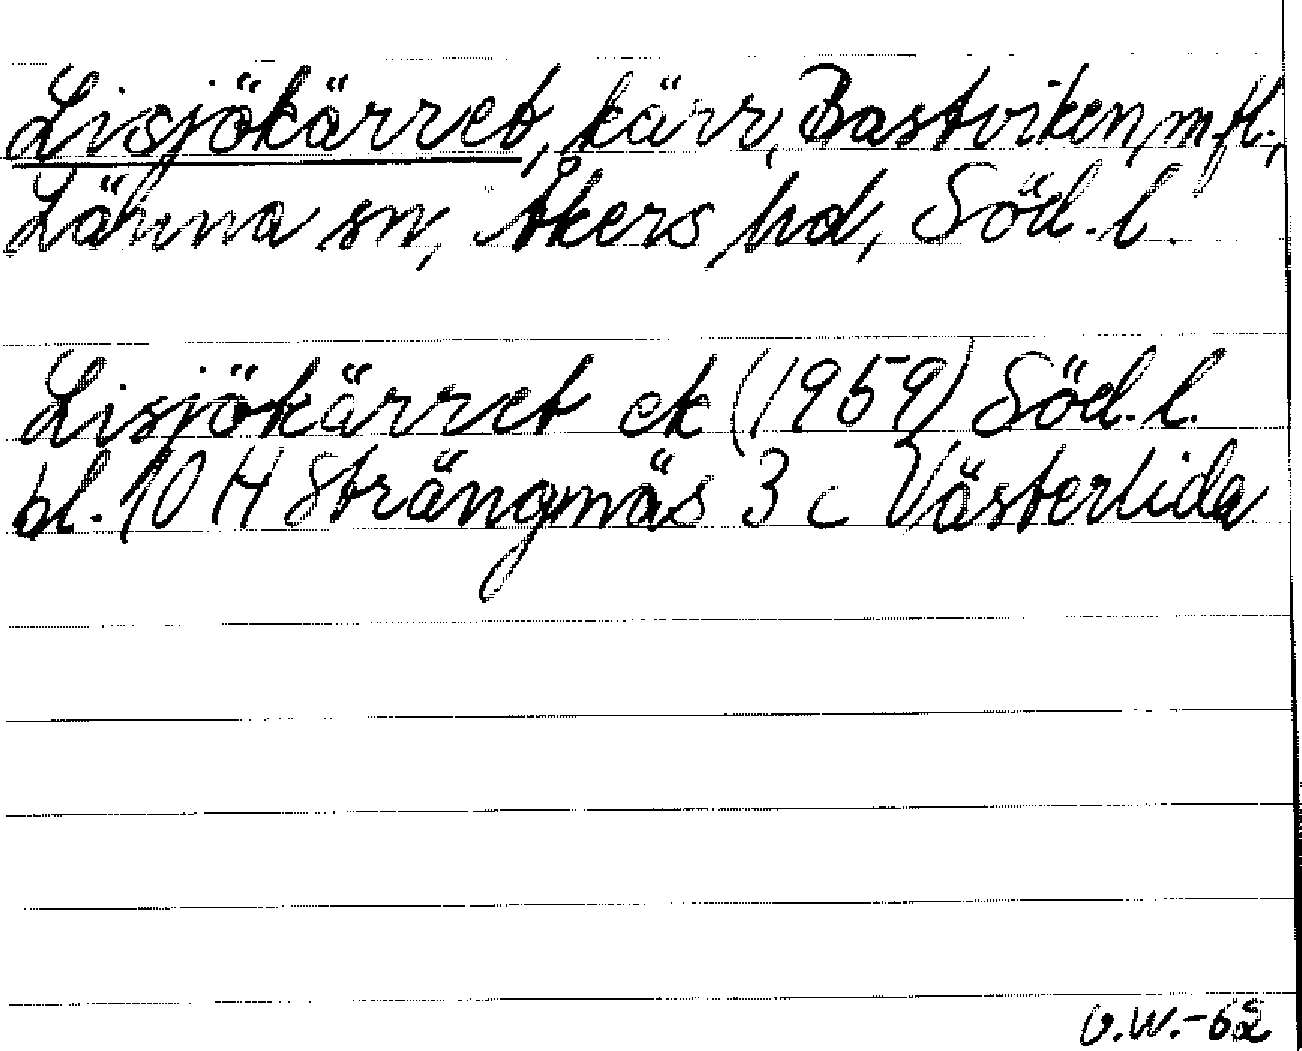 Lisjökärret, kärr, Bastviken, m.fl.,
Länna sn, Åkers hd, Söd.l.
Lisjökärret ek (1959) Söd.l.
bl. 10 H Strängnäs 3 c Västerlida
U.W.-62